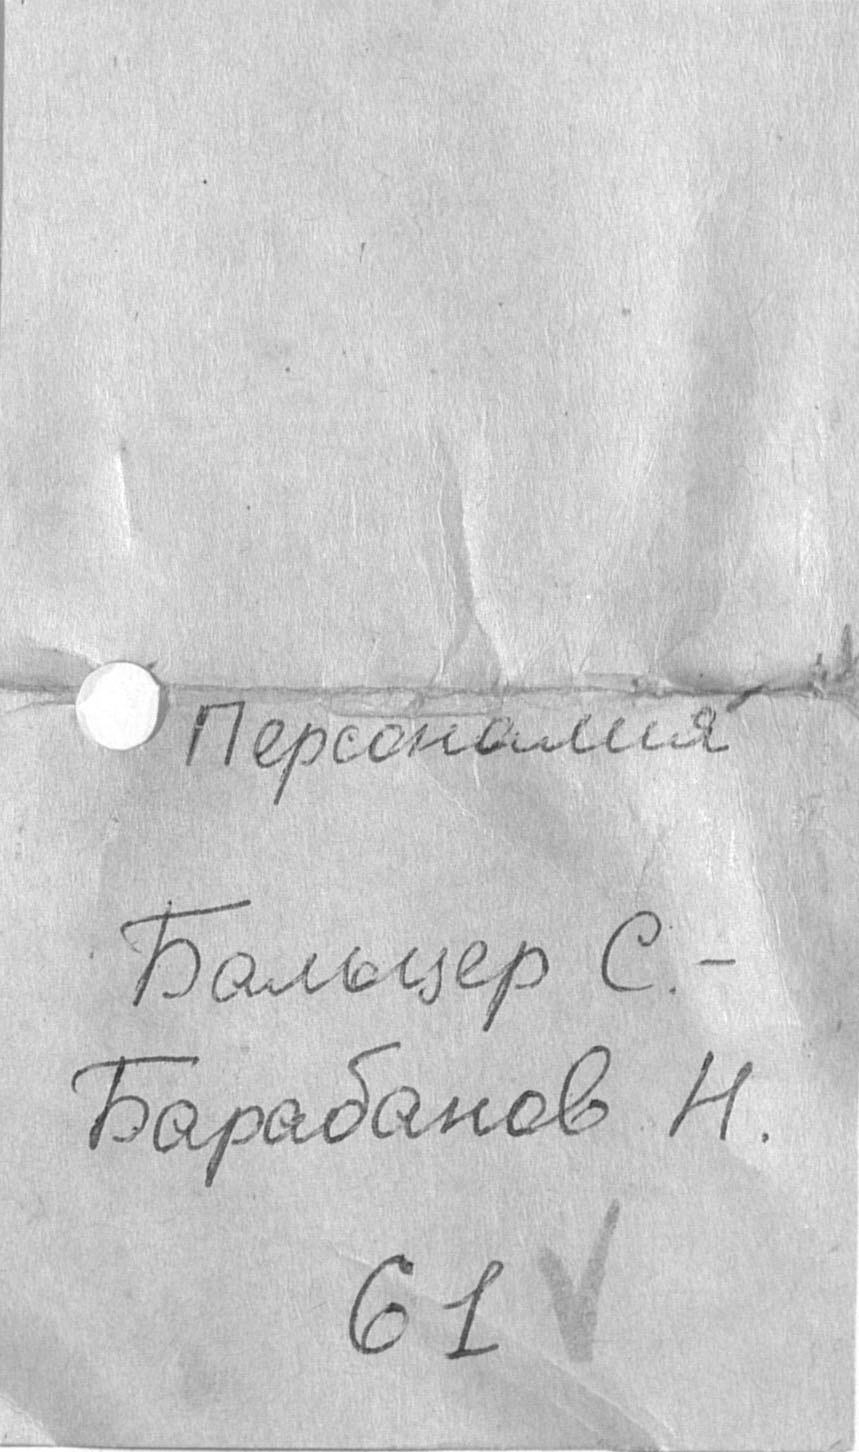 Персоналия
Бальцер С.-
Барабанов Н.
61 V